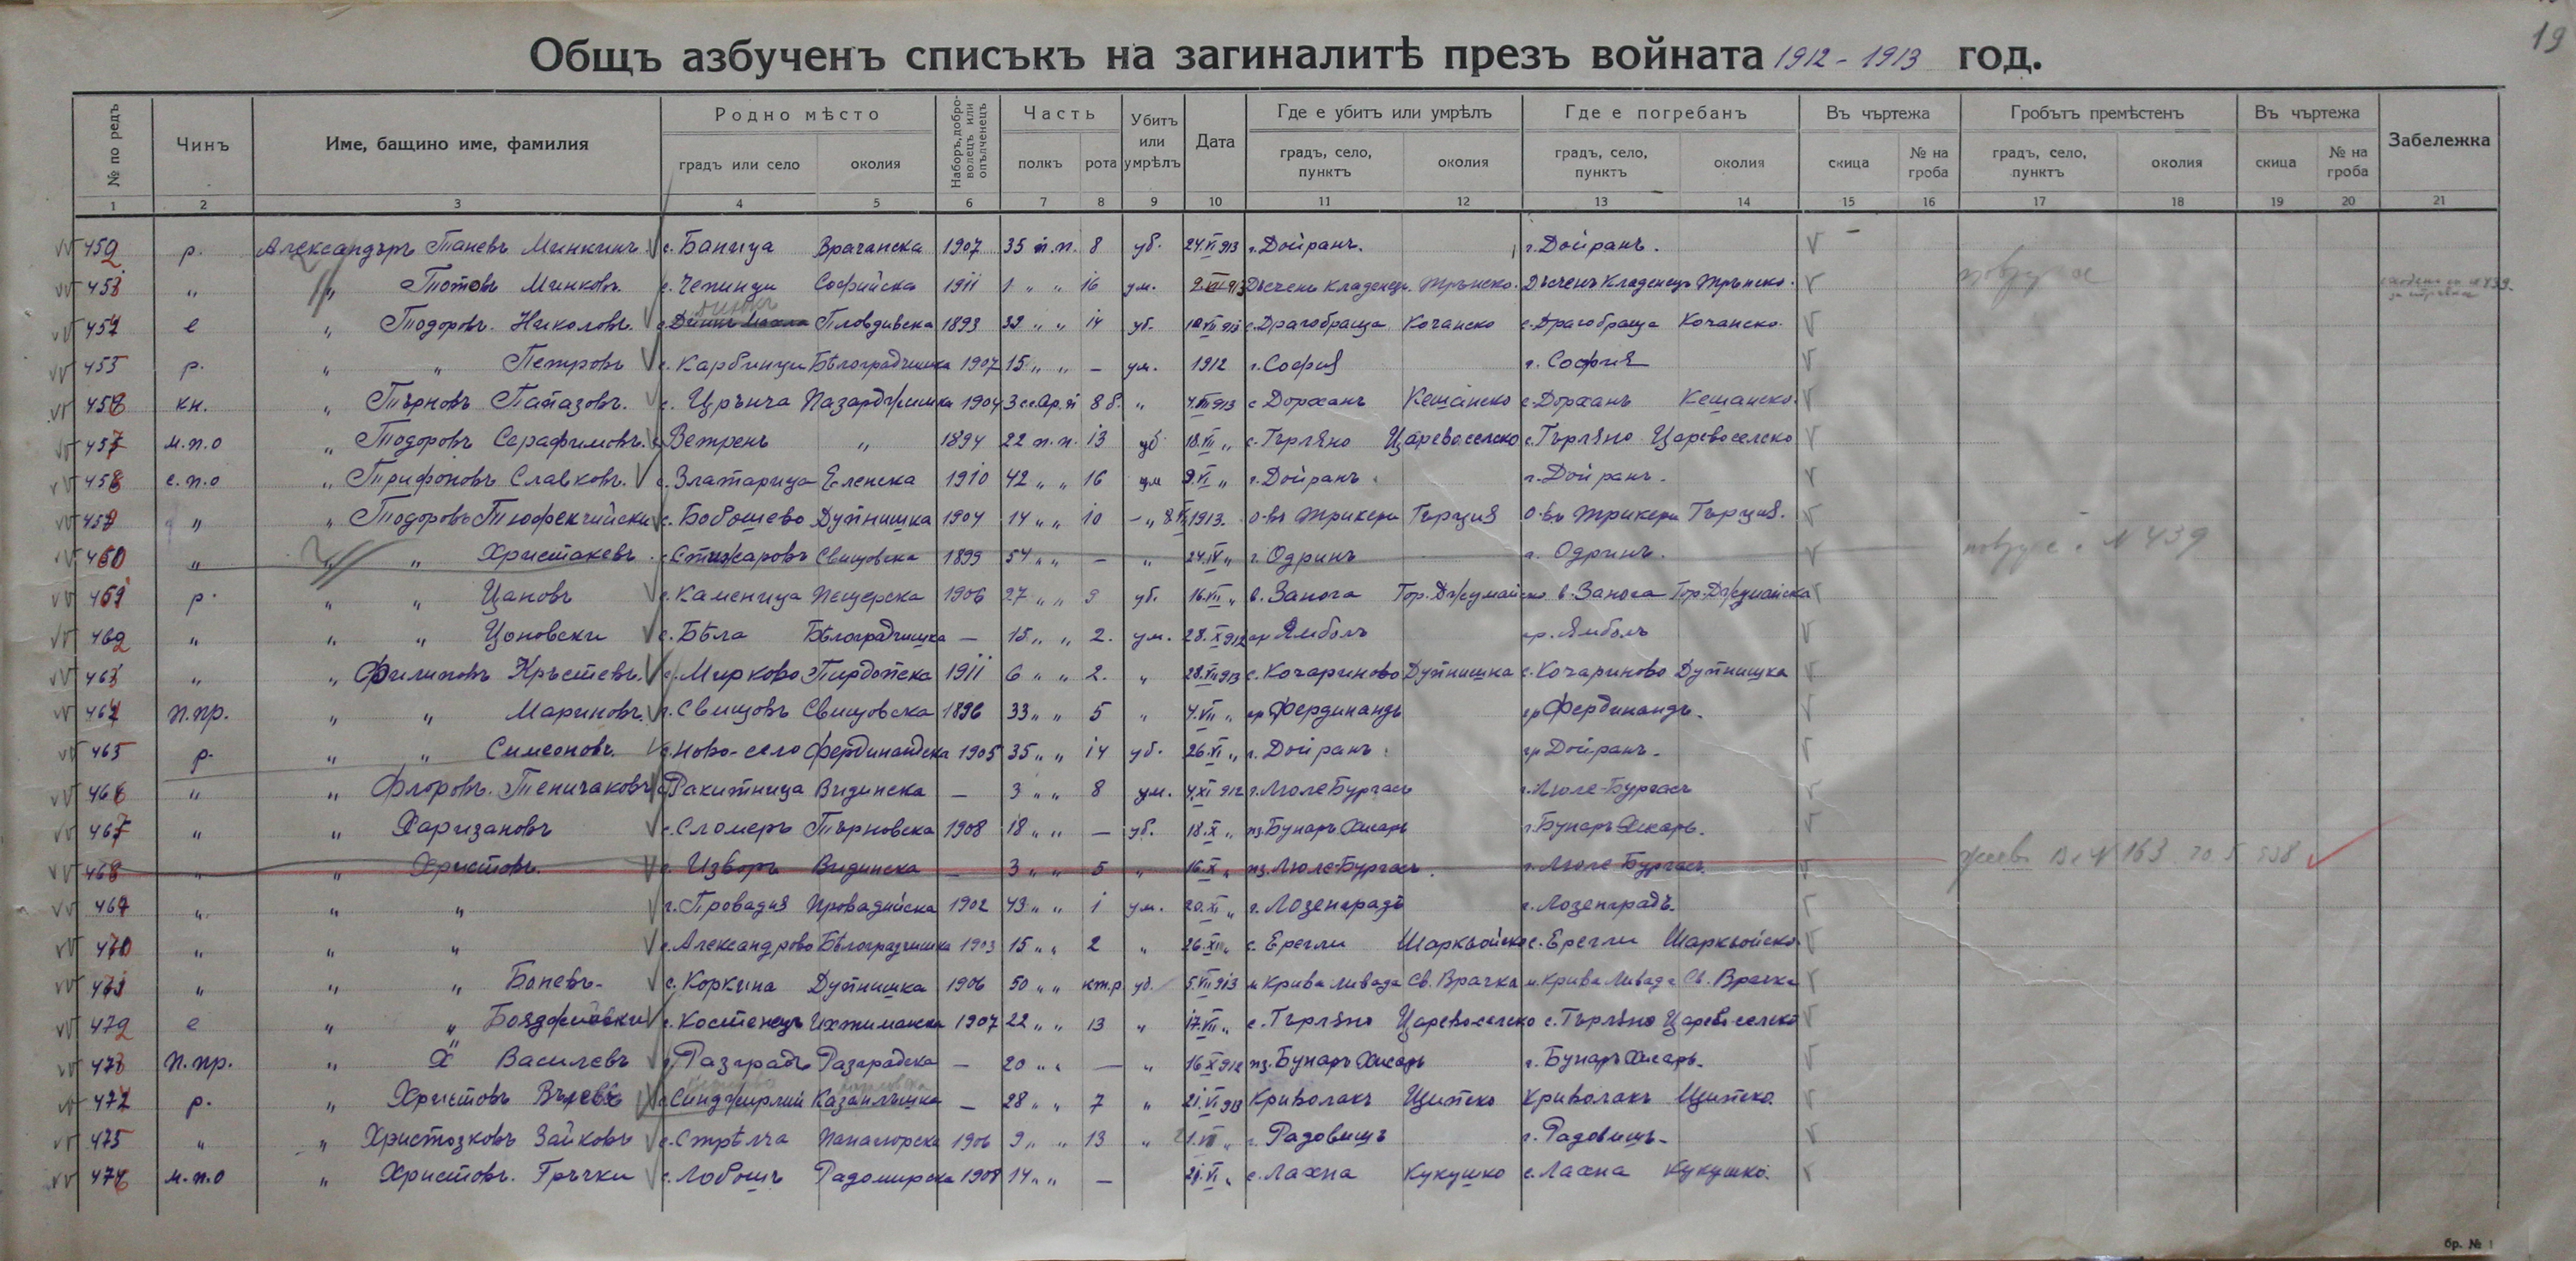 19
Общъ азбученъ списъкъ на загиналитѣ презъ войната 1912 - 1913 год.
№ по редъ Чинъ Име, бащино име, фамилия Родно мѣсто градъ или село околия Наборъ, доброволецъ или опълченецъ Часть полкъ рота Убитъ или умрѣлъ Дата Где е убитъ или умрѣлъ градъ, село, пунктъ околия Где е погребанъ градъ, село, пунктъ околия Въ чъртежа скица № на гроба Гробътъ премѣстенъ градъ, село, пунктъ околия Въ чъртежа скица № на гроба Забележка
1 2 3 4 5 6 7 8 9 10 11 12 13 14 15 16 17 18 19 20 21
452 р. Александъръ Таневъ Минкинъ с. Баница Врачанска 1907 35 п.п. 8 уб. 24.VI 913 г. Дойранъ. г. Дойранъ.
453 " " Тотовъ Минковъ. с. Чепинци Софийска 1911 1 " " 16 ум. 2.VII 913 Дъсченъ Кладенецъ Трънско. Дъсченъ Кладенецъ Трънско.
454 е " Тодоровъ. Николовъ. Пловдивска 1893 32 " " 14 уб. 10.VII 913 с. Драгобраща Кочанско с. Драгобраща Кочанско.
455 р. " " Петровъ с. Карбинци Бѣлоградчишка 1907 15 " " - ум. 1912 г. София г. София
456 кн. " Търновъ Папазовъ. с. Црънча Пазарджишка 1904 8 б. " 4.III 913 с. Дорханъ Кешанско с. Дорханъ Кешанско.
457 м.п.о " Тодоровъ Серафимовъ. с. Ветренъ " 1894 22 п.п. 13 уб 18.VII " с. Търляно Царевоселско с. Търляно Царевоселско
458 е.п.о " Трифоновъ Славковъ. с. Златарица Еленска 1910 42 " " 16 ум 9.VI " г. Дойранъ. г. Дойранъ.
459 " " Тодоровъ Тюфекчийски с. Бобошево Дупнишка 1904 14 " " 10 - " 1913. о-въ Трикери Гърция о-въ Трикери Гърция.
460 " " " Христакевъ. с. Стижаровъ Свищовска 1899 54 " " - " 24.IV " г. Одринъ г. Одринъ. № 439
461 р. " " Цановъ с. Каменица Пещерска 1906 27 " " 9 уб. 16.VII " в. Занога Гор. Джумайско в. Занога Гор. Джумайска
462 " " " Цоновски с. Бѣла Бѣлоградчишка - 15 " " 2. ум. 28.X 912 гр Ямболъ гр. Ямболъ
463 " " Филиповъ Кръстевъ. с. Мирково Пирдопска 1911 6 " " 2. " 28.VII 913 с. Кочариново Дупнишка с. Кочариново Дупнишка
464 п.пр. " " Мариновъ. г. Свищовъ Свищовска 1896 33 " " 5 " 4.VII " гр Фердинандъ гр Фердинандъ.
465 р. " " Симеоновъ. с. Ново-село Фердинандска 1905 35 " " 14 уб. 26.VI " г. Дойранъ. гр Дойранъ.
466 " " Флоровъ. Теничаковъ с. Ракитница Видинска - 3 " " 8 ум. 4.XI 912 г. Люле Бургасъ г. Люле-Бургасъ
467 " " Харизановъ с. Сломеръ Търновска 1908 18 " " - уб. 18.X " пз. Бунаръ Хисаръ г. Бунаръ Хисаръ.
468 " " Христовъ. с. Изворъ Видинска - 3 " " 5 " 16.X " пз. Люле-Бургасъ. г. Люле Бургасъ. живъ 163
469 " " " г. Провадия Провадийска 1902 43 " " 1 ум. 20.XI " г. Лозенградъ г. Лозенградъ.
470 " " " с. Александрово Бѣлоградчишка 1903 15 " " 2 " 26.XII " с. Ерегли Шаркьойско с. Ерегли Шаркьойско.
471 " " " Баневъ. с. Коркина Дупнишка 1906 50 " " кт.р уб. 5.VII 913 м Крива Ливада Св. Врачка м. Крива Ливада Св. Врачка
472 е " " Бояджийски с. Костенецъ Ихтиманска 1907 22 " " 13 " 17.VII " с. Търляно Царевоселско с. Търляно Царевоселско
473 п.пр. " Х Василевъ г. Разградъ Разградска - 20 " " - " 16.X 912 пз. Бунаръ Хисаръ г. Бунаръ Хисаръ.
474 р. " Христовъ Вълевъ с. Синджирлий Казанлъшка - 28 " " 7 " 21.VI 913 Криволакъ Щипско Криволакъ Щипско.
475 " " Христозковъ Зайковъ с. Стрѣлча Панагюрска 1906 9 " " 13 " 1.VII " г. Радовищъ г. Радовищъ.
476 м.п.о " Христовъ. Гръчки с. Лобошъ Радомирска 1908 14 " " - 21.VI " с. Лахна Кукушко с. Лахна Кукушко.
бр. № 1